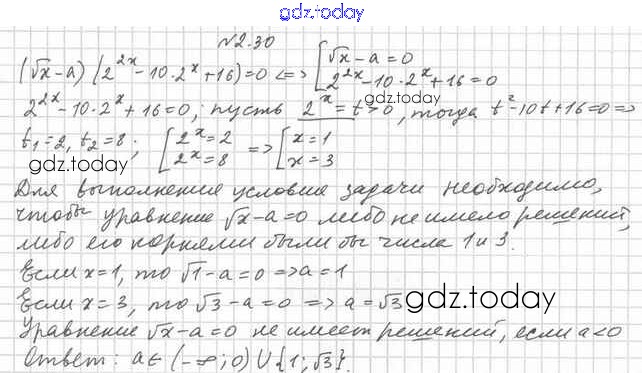 gdz.today
№2.30
(√x-a)(2^{2x}-10·2^x+16)=0 <=> [√x-a=0
2^{2x}-10·2^x+16=0
2^{2x}-10·2^x+16=0; пусть 2^x=t>0, тогда t²-10t+16=0=>
gdz.today
t₁=2, t₂=8; [2^x=2 => [x=1
2^x=8 x=3
gdz.today
Для выполнение условие задачи необходимо,
чтобы уравнение √x-a=0 либо не имело решений,
либо его корнями были бы числа 1 и 3.
Если x=1, то √1-a=0=>a=1
Если x=3, то √3-a=0 => a=√3
gdz.today
Уравнение √x-a=0 не имеет решений, если a<0
Ответ: a∈(-∞;0)∪{1;√3}.